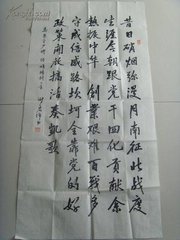 昔日硝烟弥漫月南征北战度
生涯今朝跟党干四化贡献余
热振中华创业艰难百战多
守成倍感路坎坷全靠党的好
政策开放搞活奏凯歌